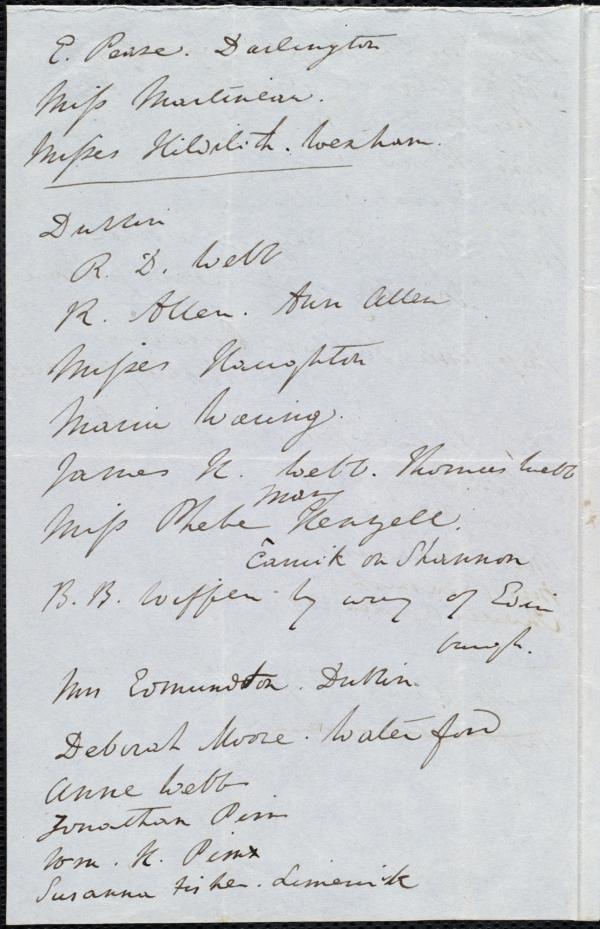 E. Pease. Darlington
Miss Martineau.
Misses Hildilith. Wexham.
Dublin
R. D. Webb
R. Allen. Ann Allen
Misses Haughton
Maria Waring.
James H. Webb. Thomas Webb
Mary
Miss Phebe Henzell.
Carrick on Shannon
B. B. Wiffen by way of Edin
burgh.
Mrs Edmundson. Dublin.
Deborah Moore. Waterford
Anne Webb
Jonathan Pim
Wm. H. Pim
Susanna Fisher. Limerick